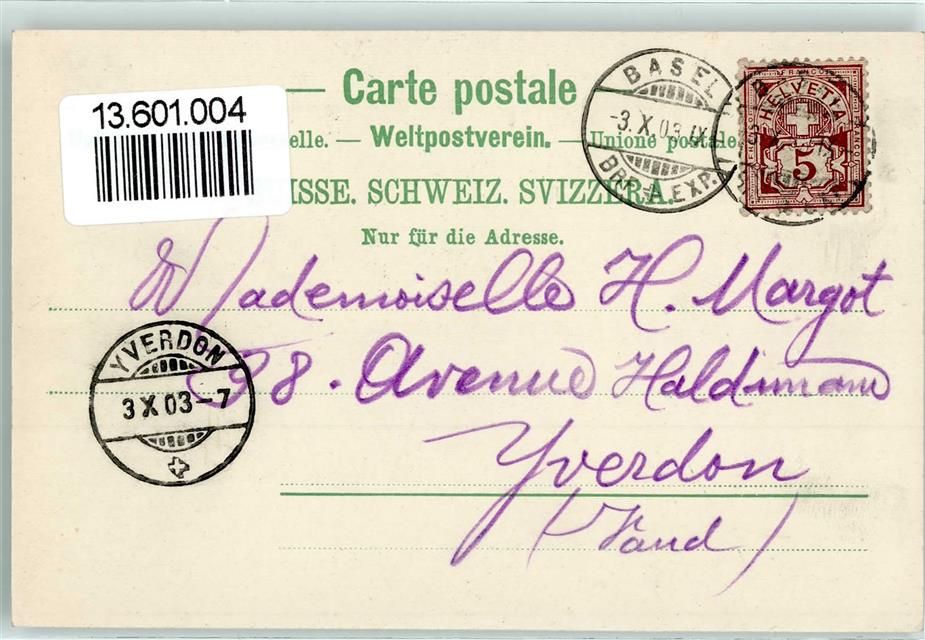 Carte postale
13.601.004
elle. — Weltpostverein. — Unione postale
ISSE. SCHWEIZ. SVIZZERA.
Nur für die Adresse.
BASEL
-3.X.03.IX-
BRF. A. EXP.
FRANCO
HELVETIA
FRANCO
5
Mademoiselle H. Margot
28. Avenue Haldimand
Yverdon
(Vaud)
YVERDON
3 X 03-7